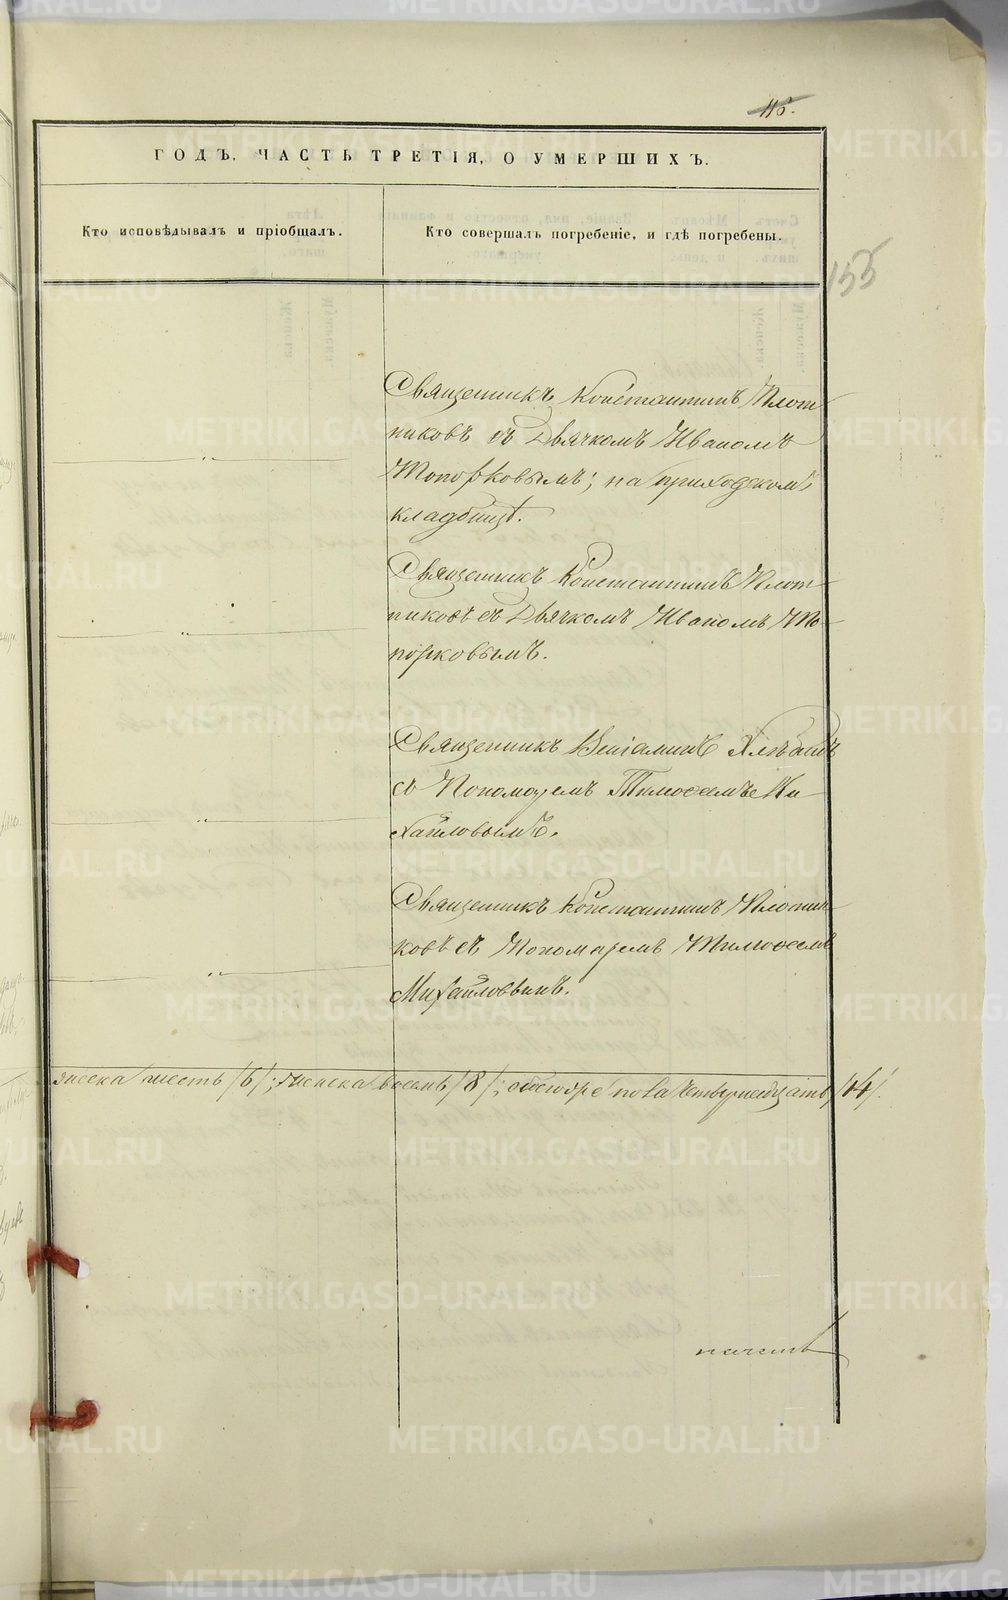 116.
ГОДЪ, ЧАСТЬ ТРЕТІЯ, О УМЕРШИХЪ.
Кто исповѣдывалъ и пріобщалъ.
Кто совершалъ погребеніе, и гдѣ погребены.
155
Священникъ Константинъ Плот
никовъ съ Дьячкомъ Иваномъ
Топорковымъ; на приходскомъ
кладбищѣ.
Священникъ Константинъ Плот
никовъ съ Дьячкомъ Иваномъ То
порковымъ.
Священникъ Веніаминъ
съ Пономаремъ Тимофеемъ Ми
хайловымъ.
Священникъ Константинъ Плотни
ковъ съ Пономаремъ Тимофеемъ
Михайловымъ.
жеска шесть /6/; женска восемь /8/; обоего пола четырнадцать /14/.
METRIKI.GASO-URAL.RU